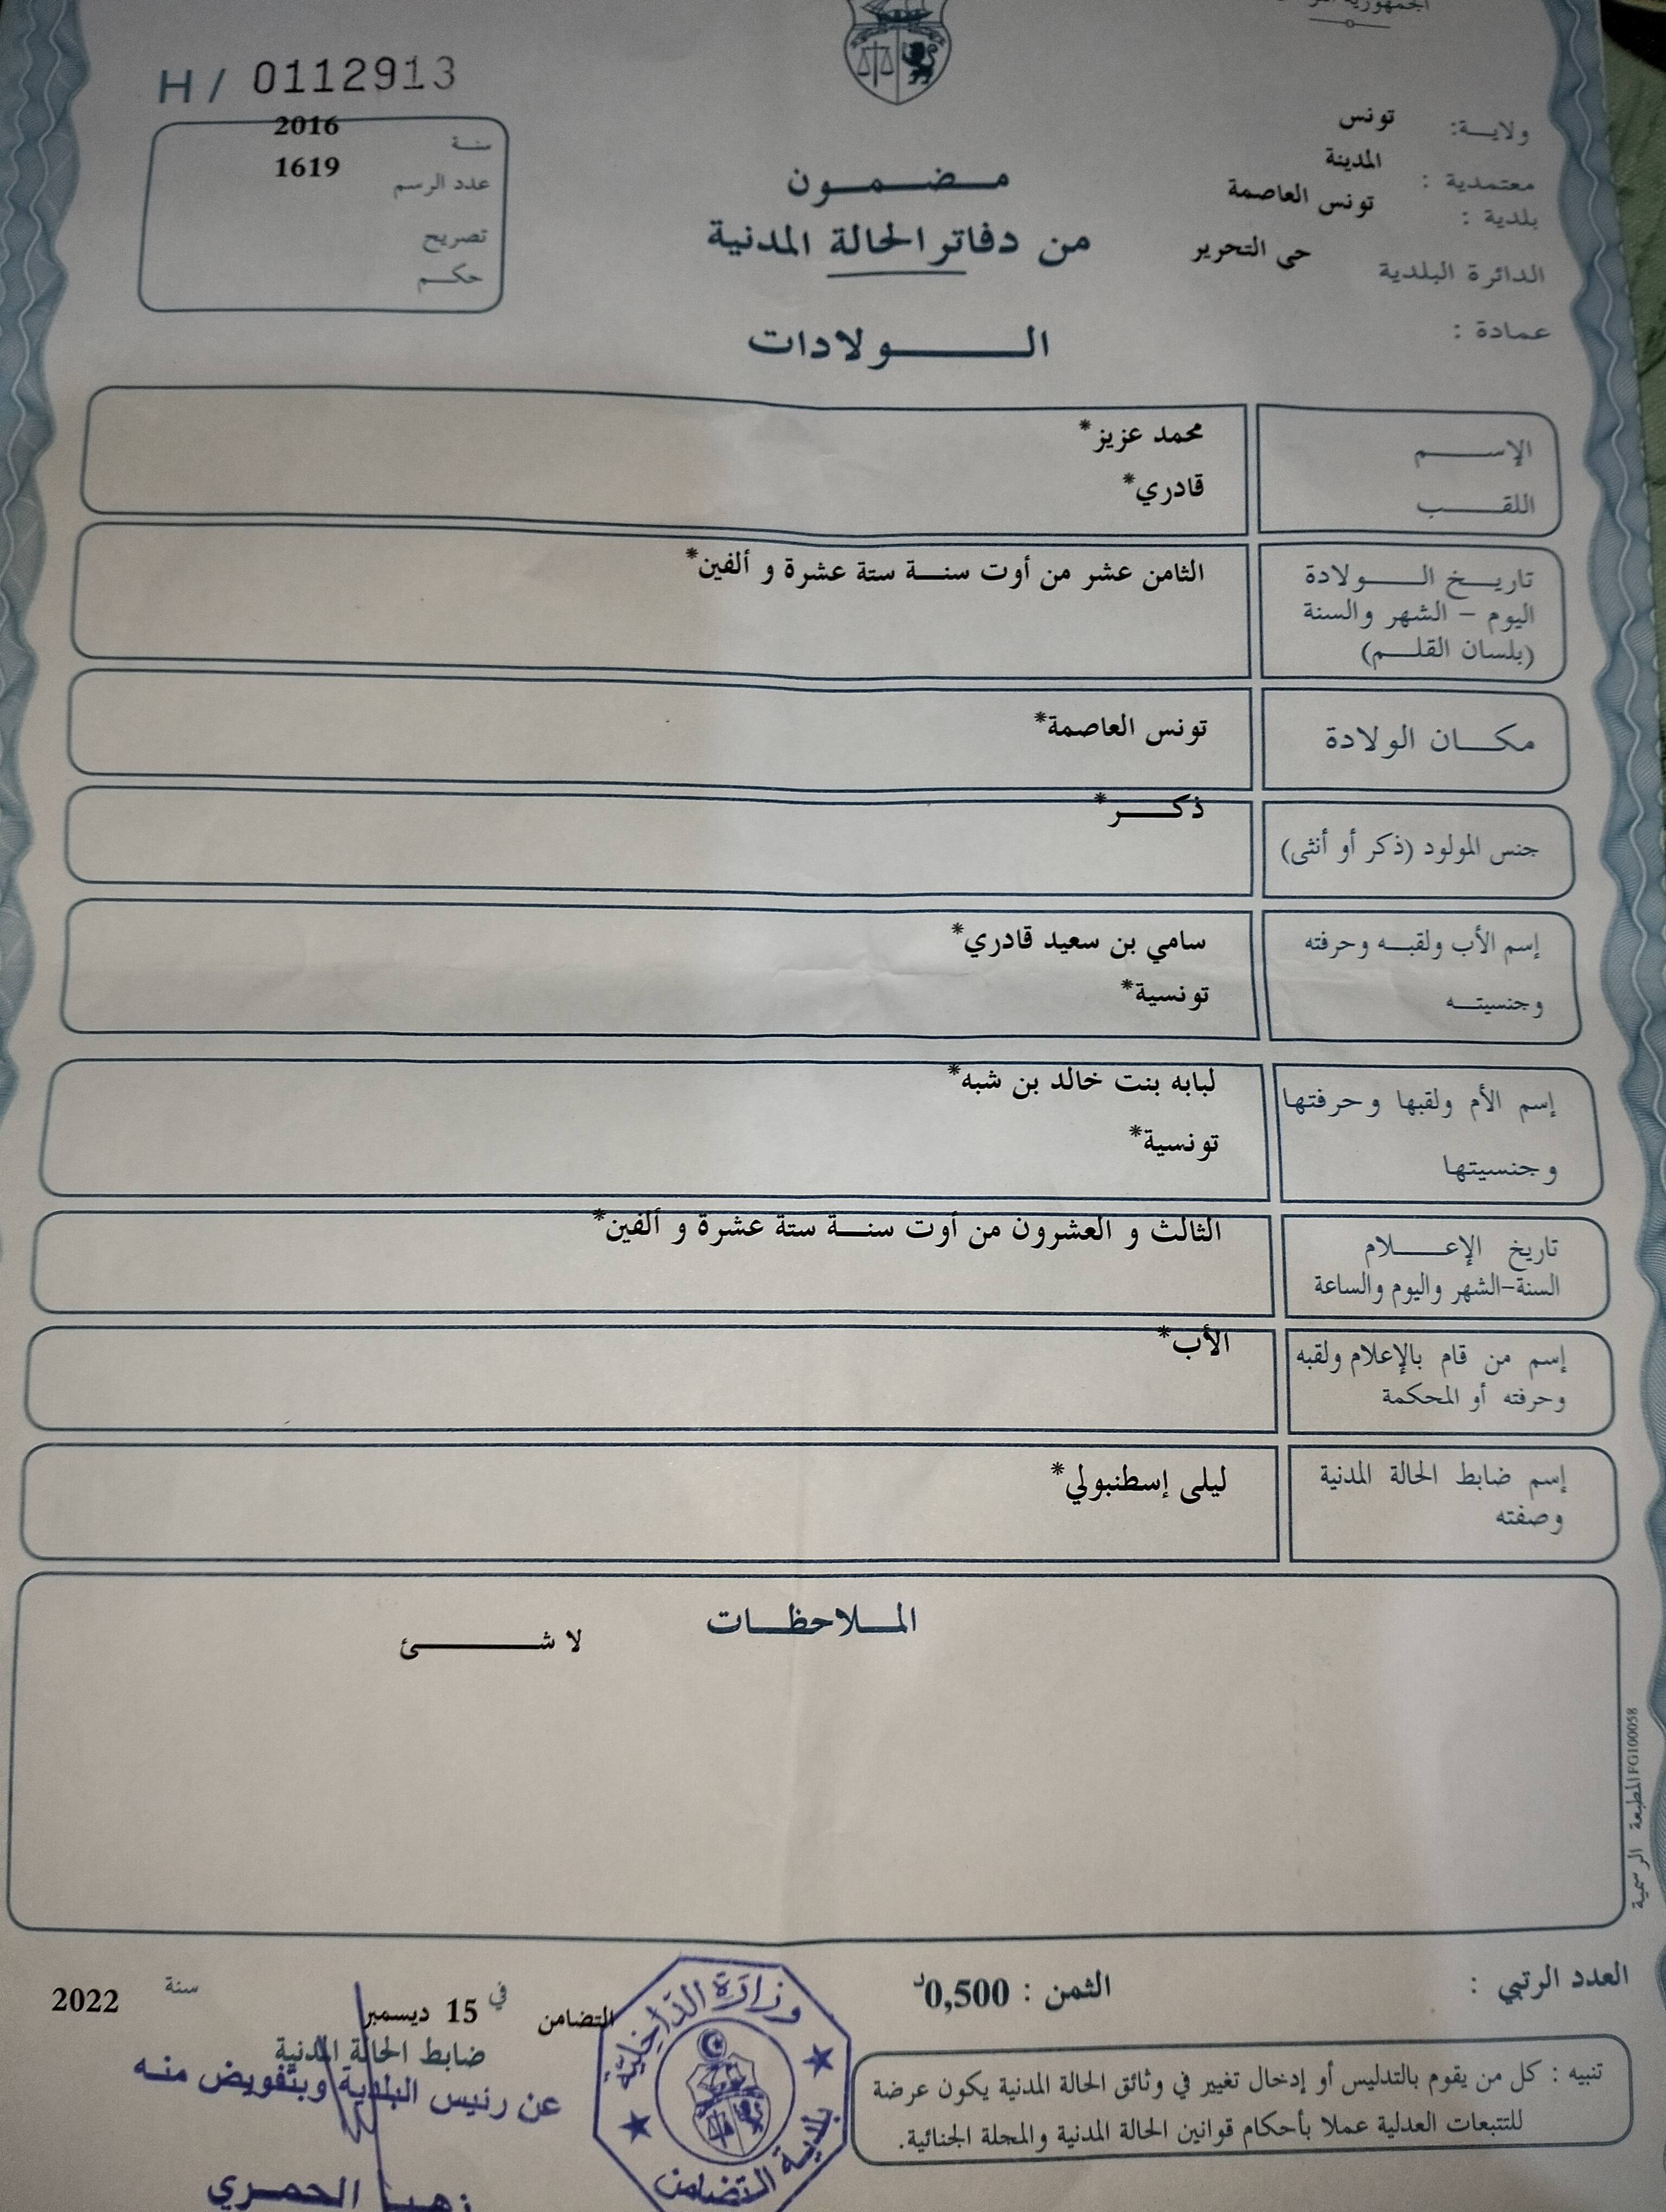 H / 0112913
سنة 2016
عدد الرسم 1619
تصريح
حكم
ولاية: تونس
معتمدية : المدينة
بلدية : تونس العاصمة
الدائرة البلدية حى التحرير
عمادة :
مضمون
من دفاتر الحالة المدنية
الولادات
الإسم محمد عزيز*
اللقب قادري*
تاريخ الولادة الثامن عشر من أوت سنة ستة عشرة و ألفين*
اليوم – الشهر والسنة
(بلسان القلم)
مكان الولادة تونس العاصمة*
جنس المولود (ذكر أو أنثى) ذكر*
إسم الأب ولقبه وحرفته سامي بن سعيد قادري*
وجنسيته تونسية*
إسم الأم ولقبها وحرفتها لبابه بنت خالد بن شبه*
وجنسيتها تونسية*
تاريخ الإعلام الثالث و العشرون من أوت سنة ستة عشرة و ألفين*
السنة-الشهر واليوم والساعة
إسم من قام بالإعلام ولقبه الأب*
وحرفته أو المحكمة
إسم ضابط الحالة المدنية ليلى إسطنبولي*
وصفته
الملاحظات
لا شئ
المطبعة الرسمية FG100058
العدد الرتبي :
الثمن : 0,500د
التضامن في 15 ديسمبر سنة 2022
ضابط الحالة المدنية
عن رئيس البلدية وبتفويض منه
الحمري
وزارة الداخلية
بلدية التضامن
تنبيه : كل من يقوم بالتدليس أو إدخال تغيير في وثائق الحالة المدنية يكون عرضة
للتتبعات العدلية عملا بأحكام قوانين الحالة المدنية والمجلة الجنائية.